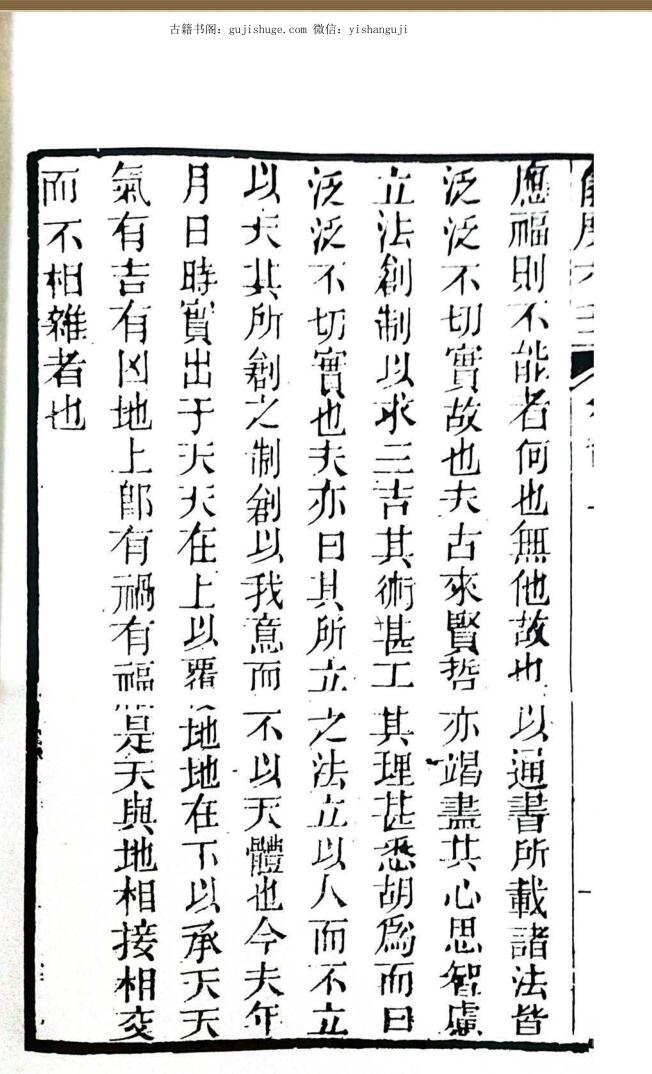 古籍书阁：gujishuge.com 微信：yishanguji
應福則不能者何也無他故也以通書所載諸法皆
泛泛不切實故也夫古來賢哲亦竭盡其心思智慮
立法創制以求三吉其術甚工其理甚悉胡爲而曰
泛泛不切實也夫亦曰其所立之法立以人而不立
以天其所創之制創以我意而不以天體也今夫年
月日時實出于天天在上以覆地地在下以承天天
氣有吉有凶地上卽有禍有福是天與地相接相交
而不相雜者也